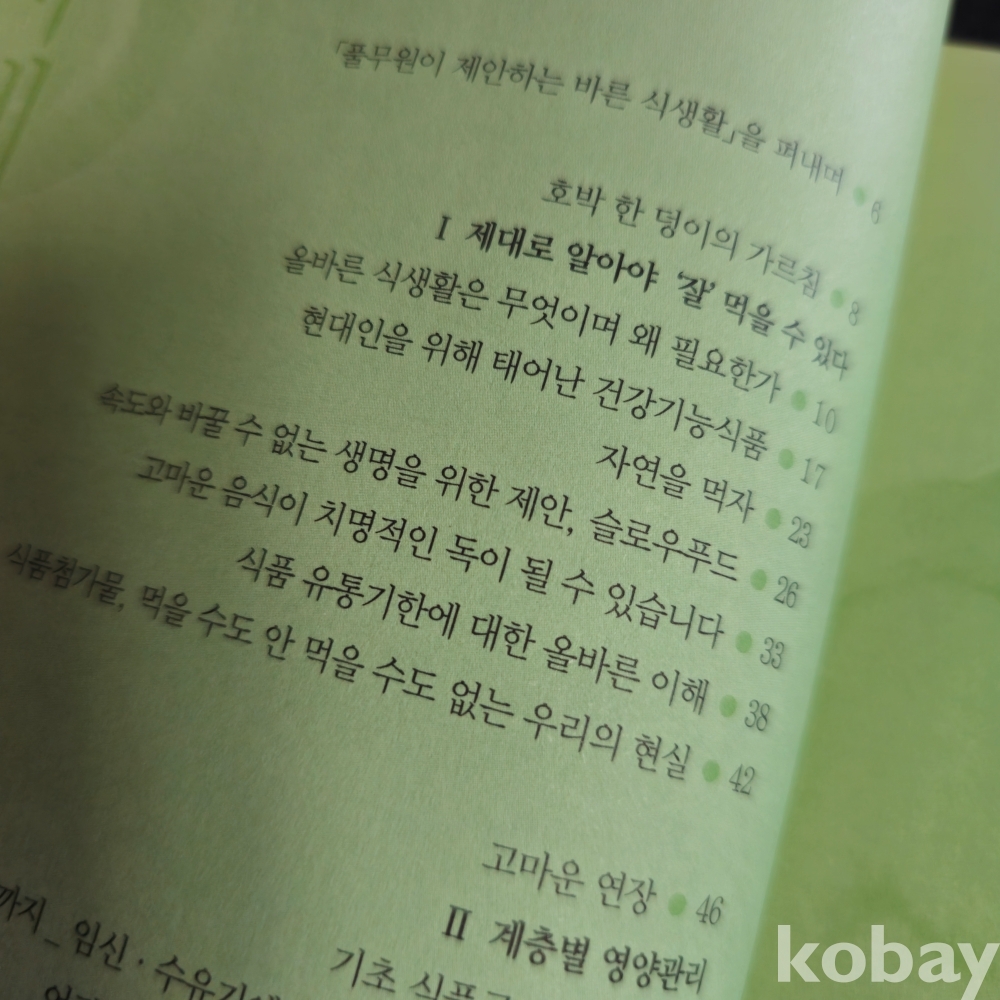 「풀무원이 제안하는 바른 식생활」을 펴내며 ● 6
호박 한 덩이의 가르침 ● 8
I 제대로 알아야 '잘' 먹을 수 있다
올바른 식생활은 무엇이며 왜 필요한가 ● 10
현대인을 위해 태어난 건강기능식품 ● 17
자연을 먹자 ● 23
속도와 바꿀 수 없는 생명을 위한 제안, 슬로우푸드 ● 26
고마운 음식이 치명적인 독이 될 수 있습니다 ● 33
식품 유통기한에 대한 올바른 이해 ● 38
식품첨가물, 먹을 수도 안 먹을 수도 없는 우리의 현실 ● 42
고마운 연장 ● 46
II 계층별 영양관리
기초 식품
까지_임신·수유기에
kobay